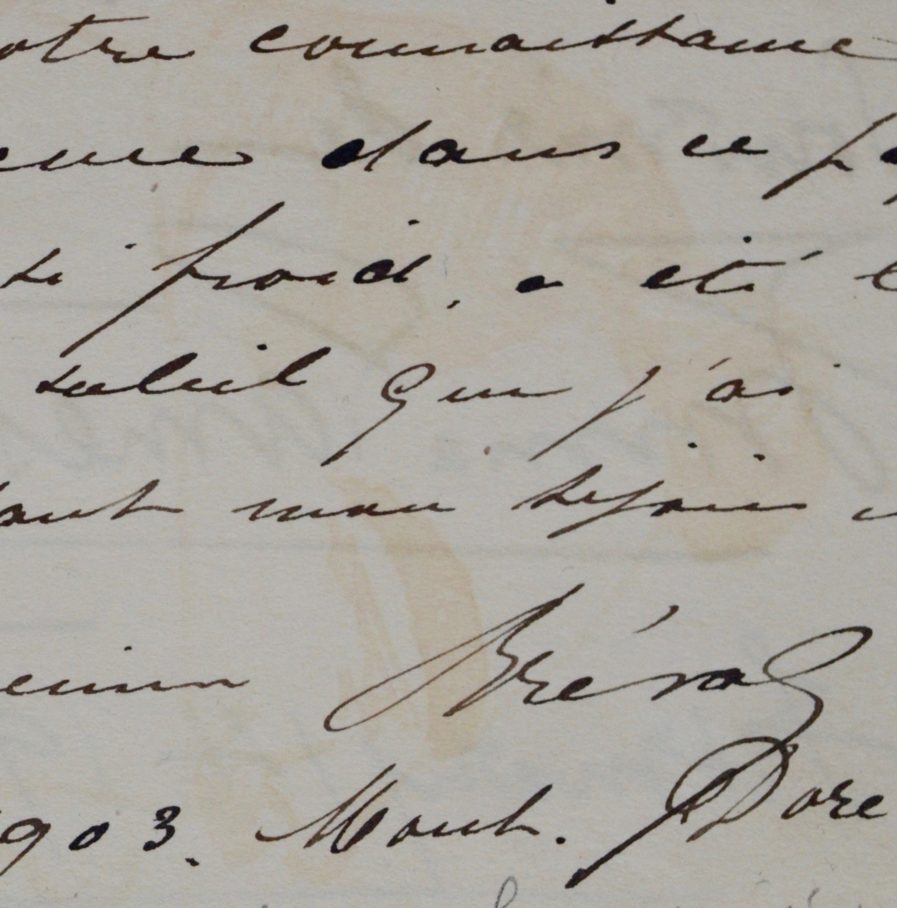 otre connaissance
dans ce
si froid, a été
soleil que j'ai
dant mon séjour
Bréval
1903. Mont. Dore